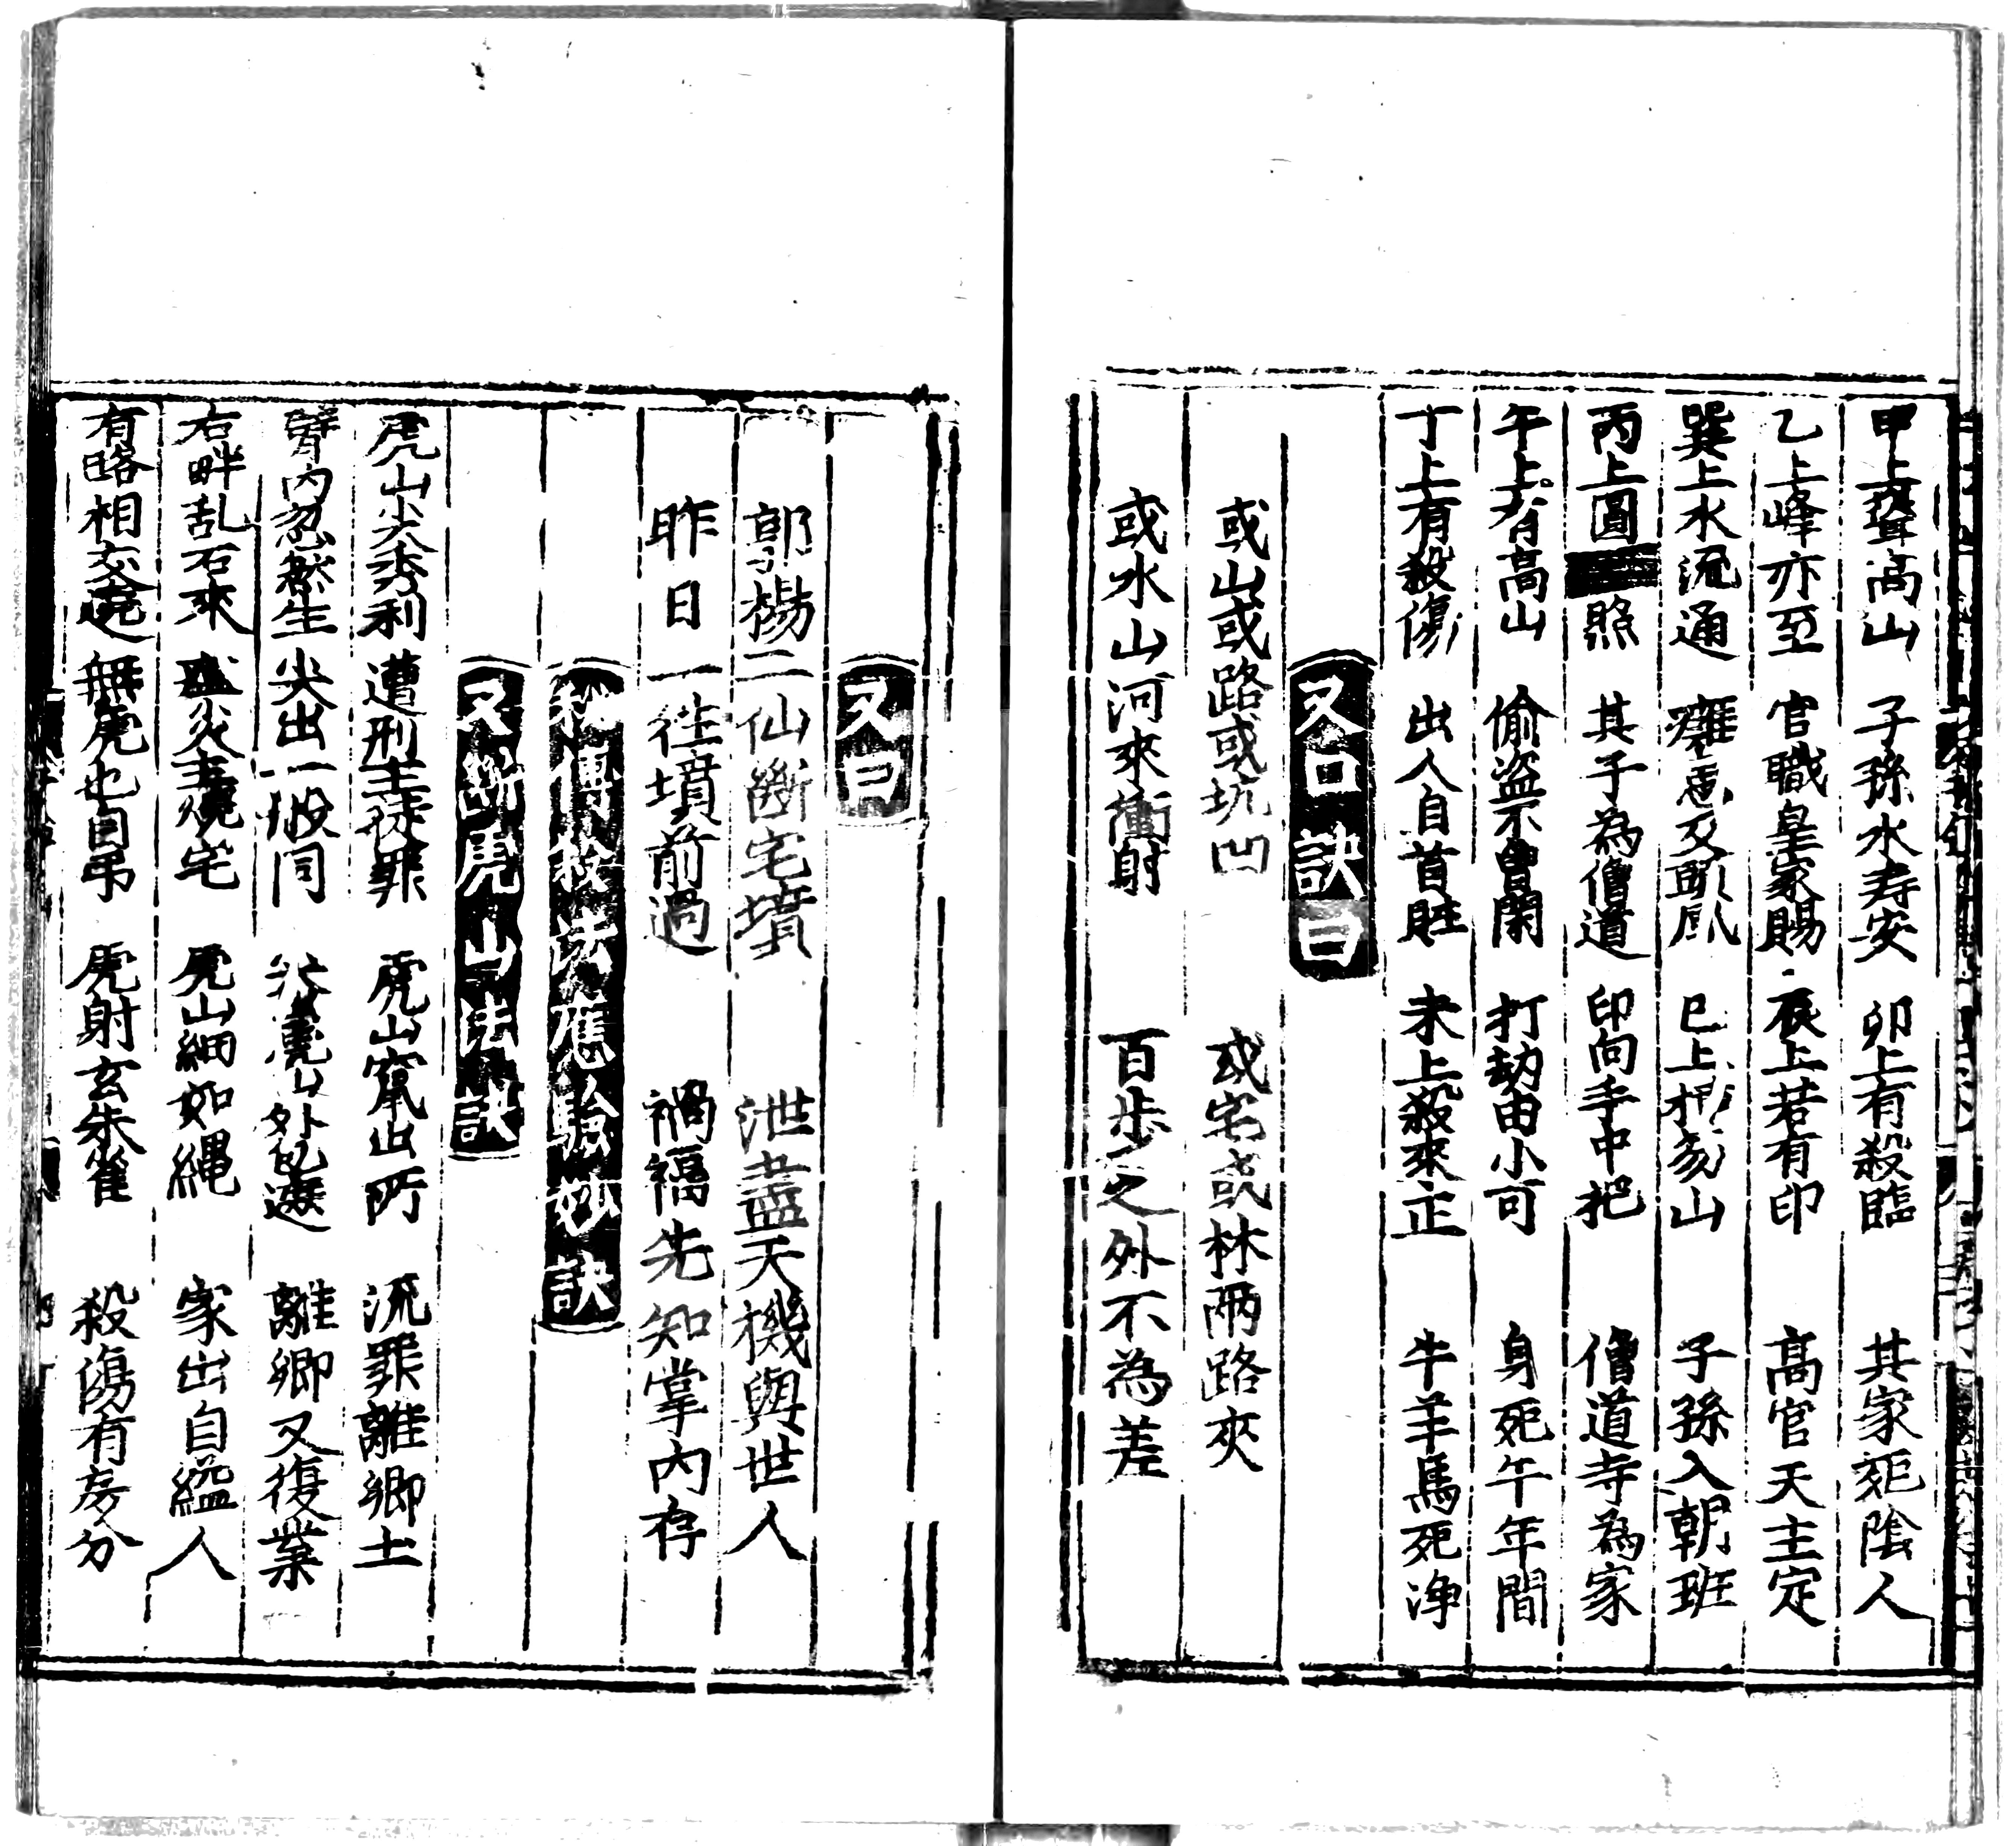 甲上聳高山　子孫水寿安　卯上有殺臨　其家死陰人
乙上峰亦至　官職皇家賜　辰上若有印　高官天主定
巽上水流通　癰　及頭風　巳上　山　子孫入朝班
丙上圓　照　其子為僧道　印向手中把　僧道寺為家
午上有高山　偷盗不曽閑　打劫由小可　身死午年間
丁上有殺傷　出人自首胜　未上殺來正　牛羊馬死浄
又口訣曰
或山或路或坑凹　或宅或林兩路夾
或水山河來衝射　百歩之外不為差
又曰
郭楊二仙斷宅墳　泄盡天機與世人
昨日一往墳前過　禍福先知掌内存
秘傳殺法應驗妙訣
又斷虎山法訣
虎山尖秀利　遭刑主徒罪　虎山窜出所　流罪離郷土
臂内忽然生　尖出一般同　虎山外　離郷又復業
右畔乱石來　火主燒宅　虎山細如縄　家出自縊人
有路相交遶　無虎也自吊　虎射玄朱雀　殺傷有房分